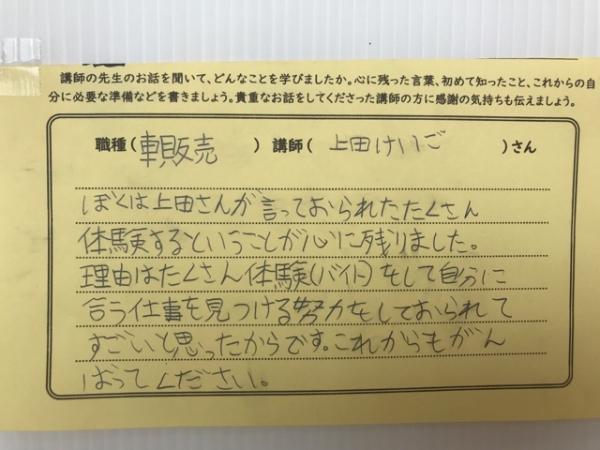 講師の先生のお話を聞いて、どんなことを学びましたか。心に残った言葉、初めて知ったこと、これからの自
分に必要な準備などを書きましょう。貴重なお話をしてくださった講師の方に感謝の気持ちも伝えましょう。
職種(車販売)講師(上田けいご)さん
ぼくは上田さんが言っておられたたくさん
体験するということが心に残りました。
理由はたくさん体験(バイト)をして自分に
合う仕事を見つける努力をしておられて
すごいと思ったからです。これからもがん
ばってください。